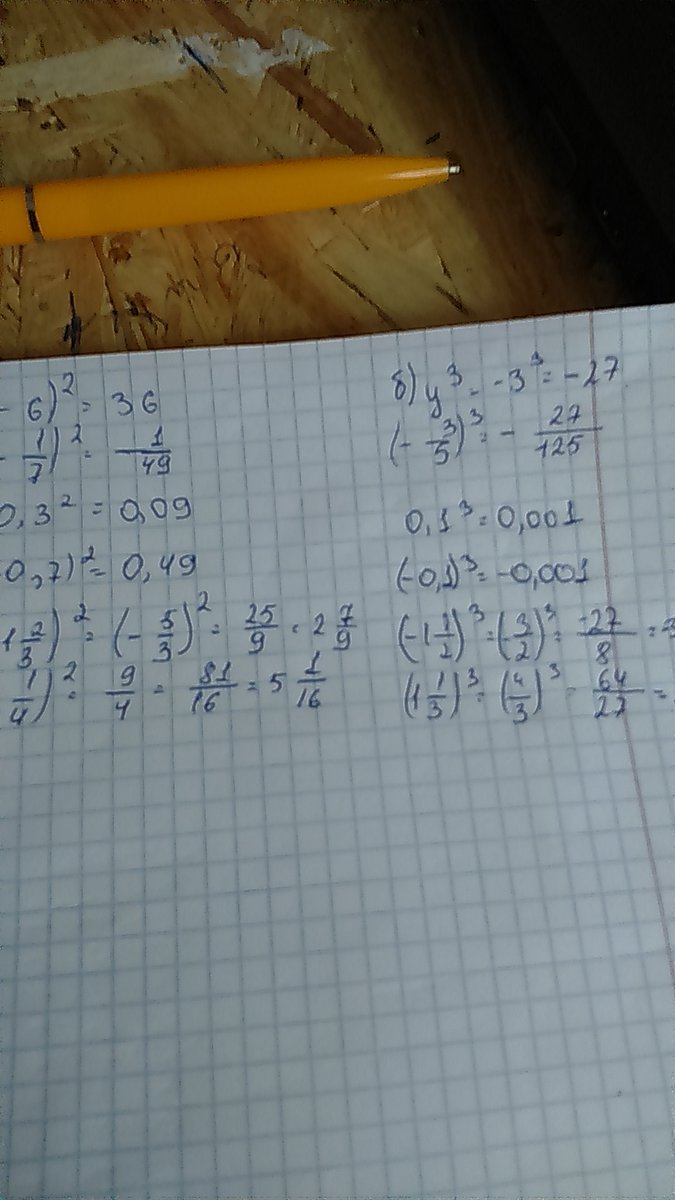 - 6)² = 36
- 1/7)² = 1/49
0,3² = 0,09
0,7)² = 0,49
1 2/3)² = (- 5/3)² = 25/9 = 2 7/9
1/4)² = 9/4 = 81/16 = 5 1/16
б) y³ = -3³ = -27
(- 3/5)³ = - 27/125
0,1³ = 0,001
(-0,1)³ = -0,001
(-1 1/2)³ = (3/2)³ = -27/8 =
(1 1/3)³ = (4/3)³ = 64/27 =